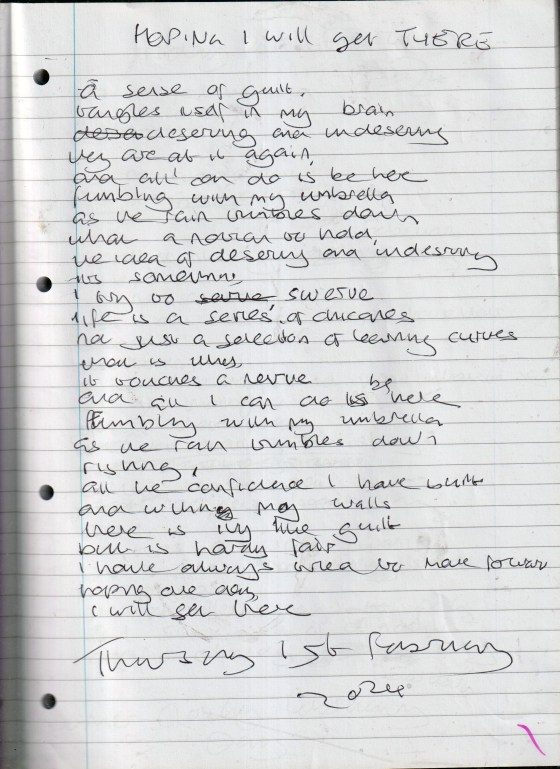 HOPING I will get THERE
A sense of guilt,
tangles itself in my brain
deserving and undeserving
they are at it again,
and all I can do is be here
fumbling with my umbrella
as the rain tumbles down
what a notion to hold,
the idea of deserving and undeserving
its something
I try to serve swerve
life is a series of chicanes
not just a selection of learning curves
that is why,
it touches a nerve
and all I can do is be here
fumbling with my umbrella
as the rain tumbles down
rushing,
all the confidence I have built
and within my walls
there is ivy like guilt
but is hardly fair
I have always tried to move forward
hoping one day,
I will get there
Thursday 1st February
2024